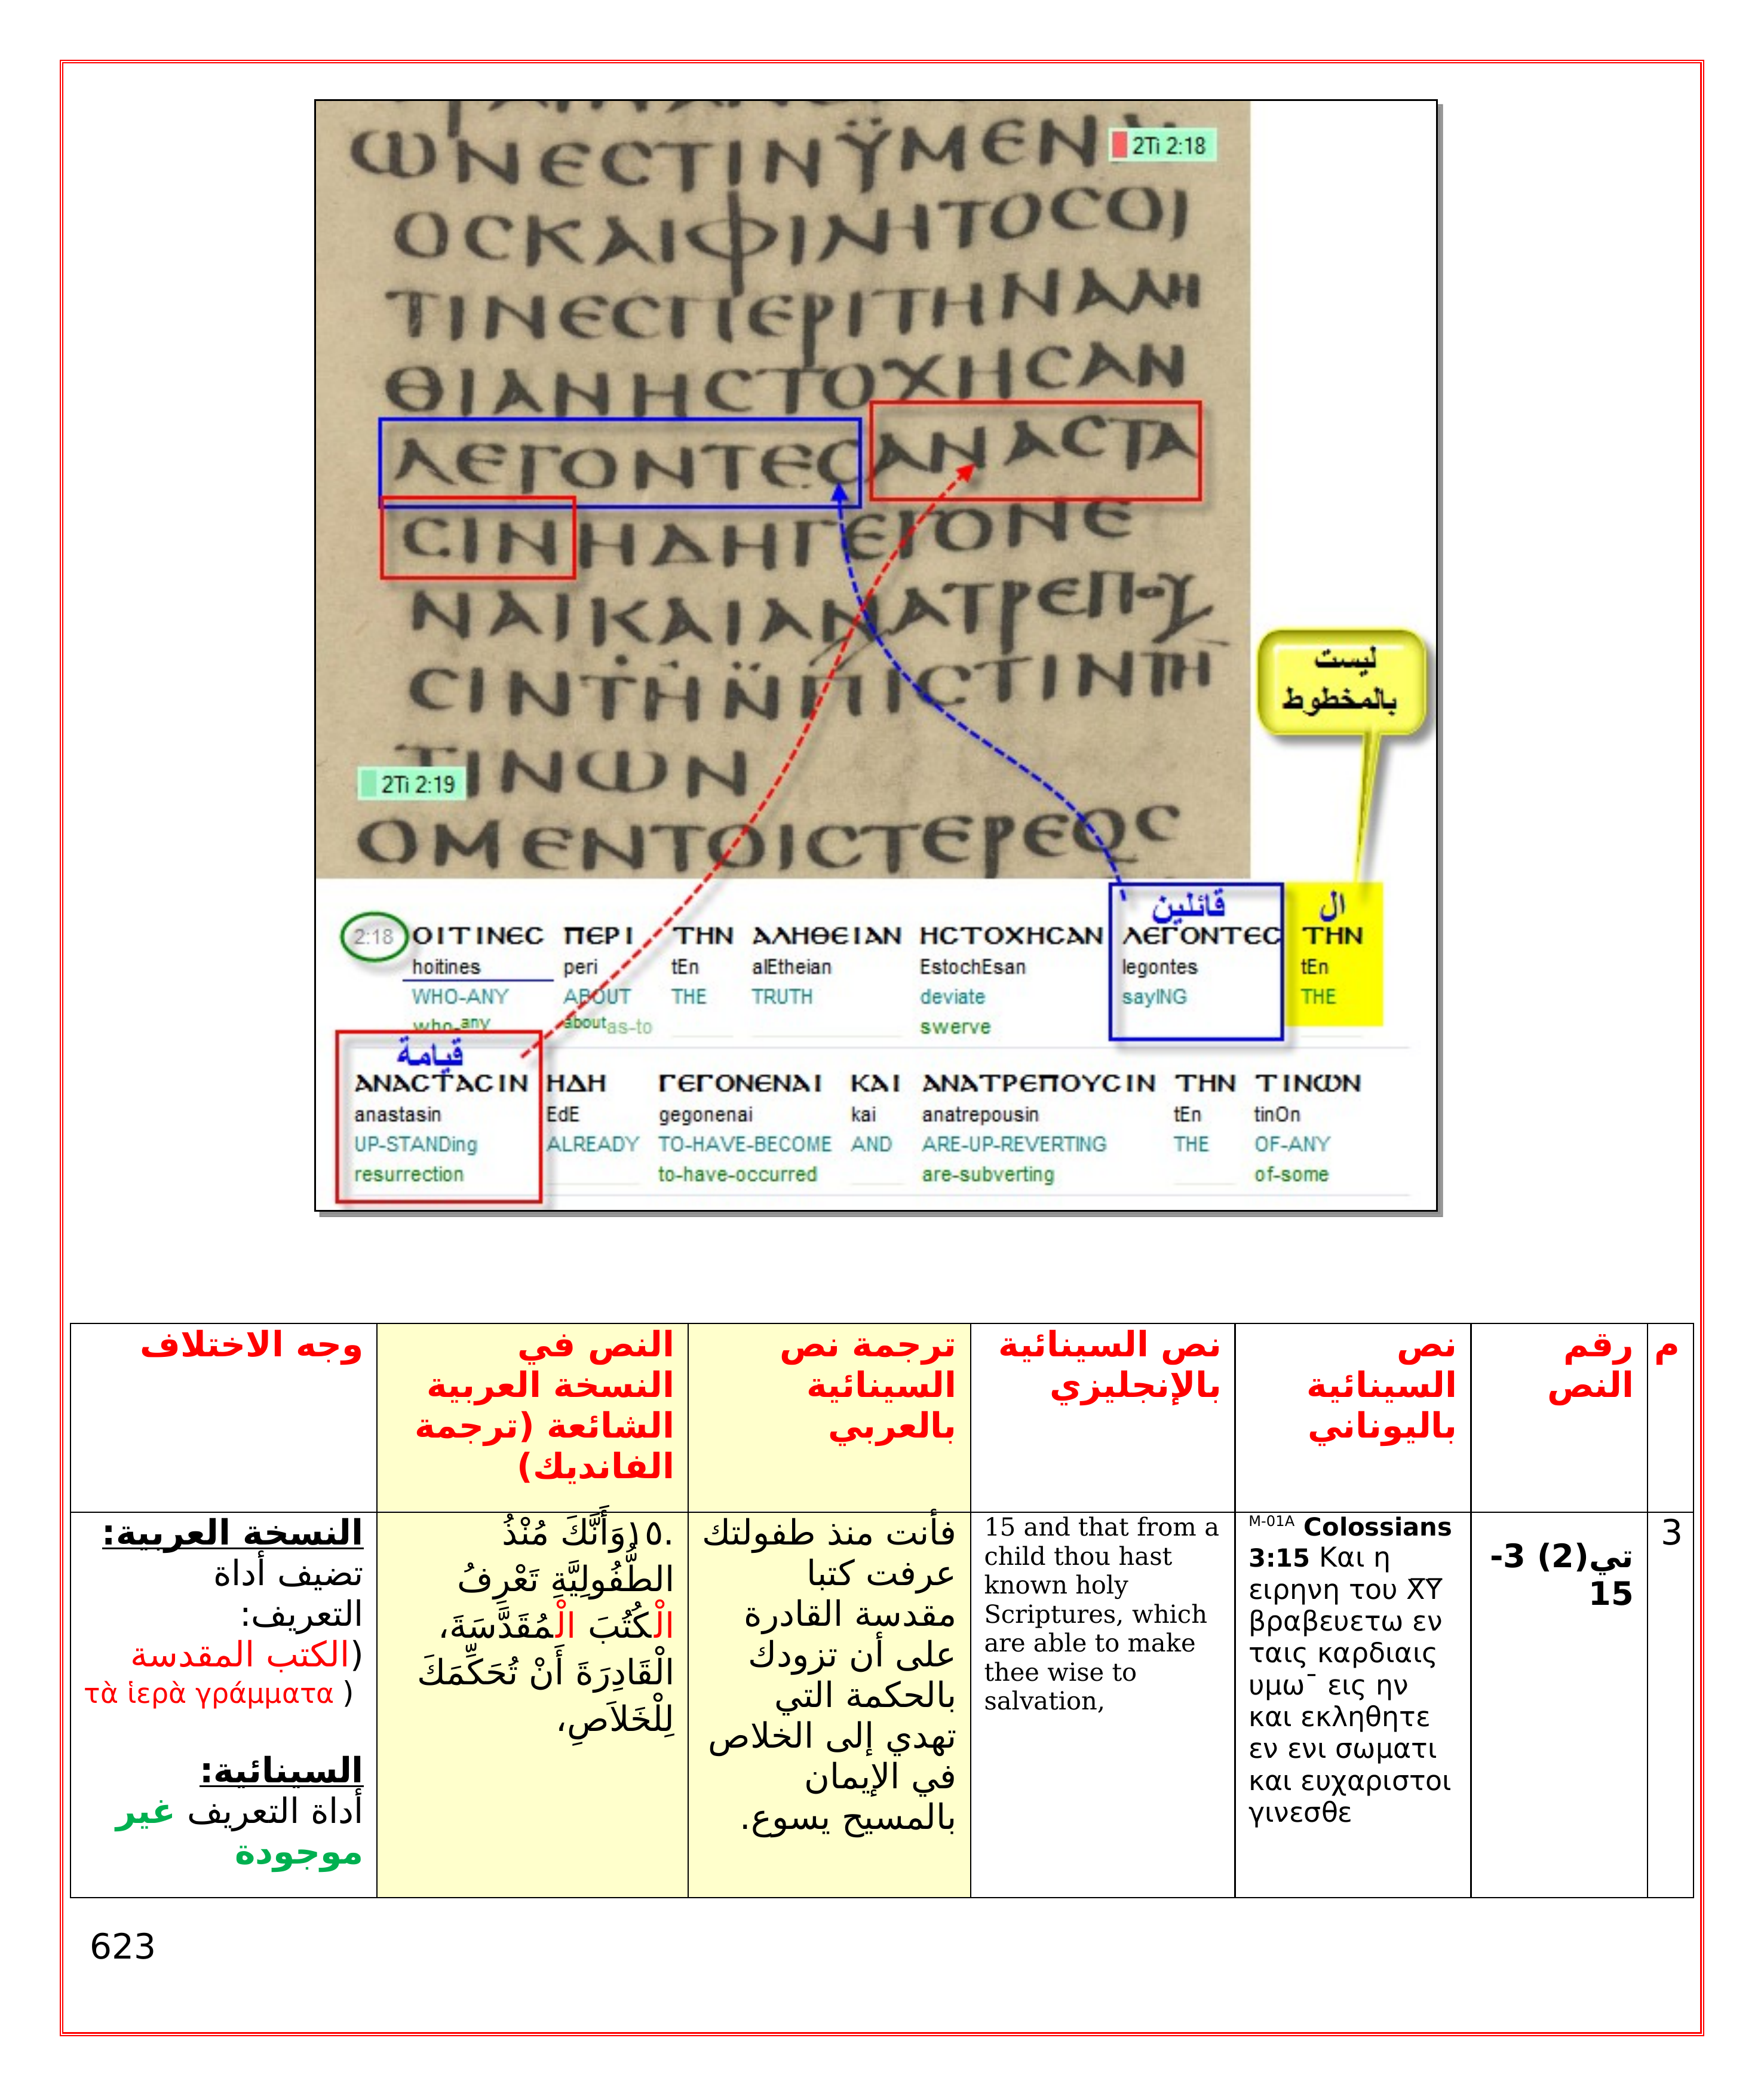 ΩΝΕϹΤΙΝΫΜΕΝ
2Ti 2:18
ΟϹΚΑΙΦΙΛΗΤΟϹΟΙ
ΤΙΝΕϹΠΕΡΙΤΗΝΑΛΗ
ΘΙΑΝΗϹΤΟΧΗϹΑΝ
ΛΕΓΟΝΤΕϹΑΝΑϹΤΑ
ϹΙΝΗΔΗΓΕΓΟΝΕ
ΝΑΙΚΑΙΑΝΑΤΡΕΠΟΥ
ϹΙΝΤΗΝΠΙϹΤΙΝΤΗ
ليست
بالمخطوط
2Ti 2:19
ΤΙΝΩΝ
ΟΜΕΝΤΟΙϹΤΕΡΕΟϹ
قائلين ال
2:18 ΟΙΤΙΝΕϹ ΠΕΡΙ ΤΗΝ ΑΛΗΘΕΙΑΝ ΗϹΤΟΧΗϹΑΝ ΛΕΓΟΝΤΕϹ ΤΗΝ
hoitines peri tEn alEtheian EstochEsan legontes tEn
WHO-ANY ABOUT THE TRUTH deviate sayING THE
who-any about as-to swerve
قيامة
ΑΝΑϹΤΑϹΙΝ ΗΔΗ ΓΕΓΟΝΕΝΑΙ ΚΑΙ ΑΝΑΤΡΕΠΟΥϹΙΝ ΤΗΝ ΤΙΝΩΝ
anastasin EdE gegonenai kai anatrepousin tEn tinOn
UP-STANDing ALREADY TO-HAVE-BECOME AND ARE-UP-REVERTING THE OF-ANY
resurrection to-have-occurred are-subverting of-some
م
رقم
النص
نص
السينائية
باليوناني
نص السينائية
بالإنجليزي
ترجمة نص
السينائية
بالعربي
النص في
النسخة العربية
الشائعة (ترجمة
الفانديك)
وجه الاختلاف
3
تي(2) 3-
15
M-01A Colossians
3:15 Και η
ειρηνη του X̅Y̅
βραβευετω εν
ταις καρδιαις
υμω¯ εις ην
και εκληθητε
εν ενι σωματι
και ευχαριστοι
γινεσθε
15 and that from a
child thou hast
known holy
Scriptures, which
are able to make
thee wise to
salvation,
فأنت منذ طفولتك
عرفت كتبا
مقدسة القادرة
على أن تزودك
بالحكمة التي
تهدي إلى الخلاص
في الإيمان
بالمسيح يسوع.
.١٥وَأَنَّكَ مُنْذُ
الطُّفُولِيَّةِ تَعْرِفُ
الْكُتُبَ الْمُقَدَّسَةَ،
الْقَادِرَةَ أَنْ تُحَكِّمَكَ
لِلْخَلاَصِ،
النسخة العربية:
تضيف أداة
التعريف:
(الكتب المقدسة
τὰ ἱερὰ γράμματα )
السينائية:
أداة التعريف غير
موجودة
623